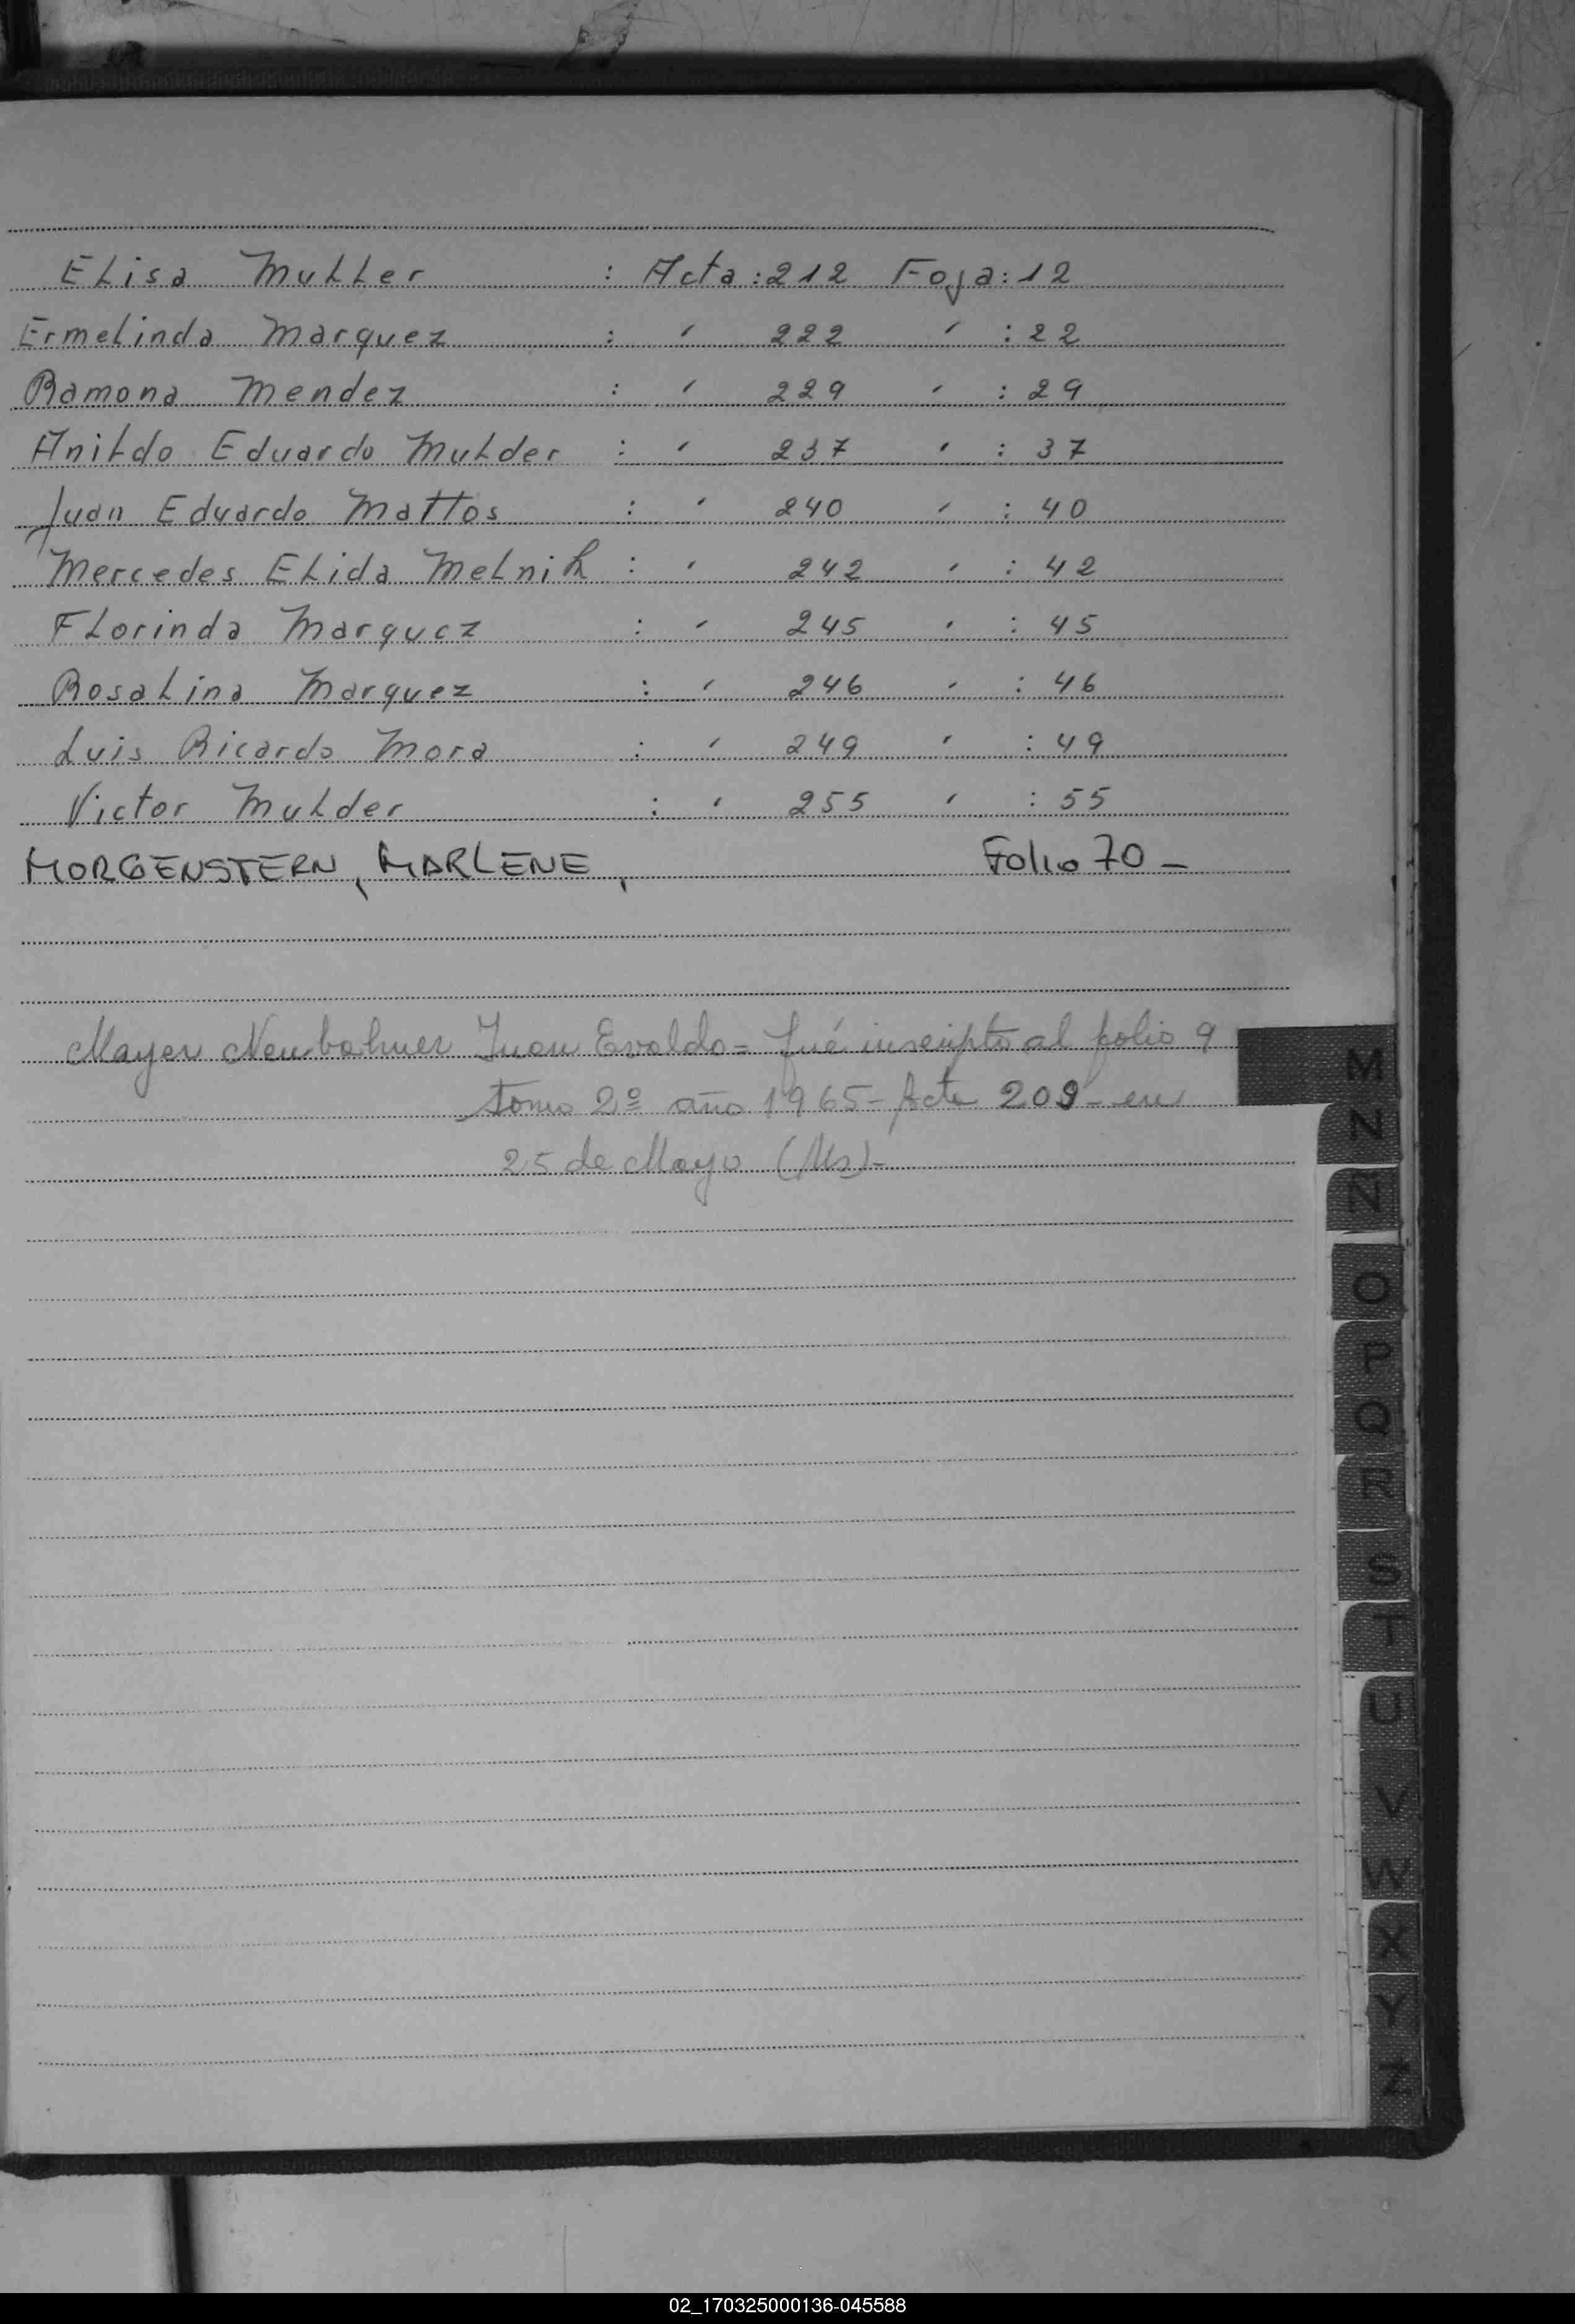 Elisa Muller : Acta : 212 Foja : 12
Ermelinda Marquez : " 222 " : 22
Ramona Mendez : " 229 " : 29
Anildo Eduardo Mulder : " 237 " : 37
Juan Eduardo Mattos : " 240 " : 40
Mercedes Elida Melnik : " 242 " : 42
Florinda Marquez : " 245 " : 45
Rosalina Marquez : " 246 " : 46
Luis Ricardo Mora : " 249 " : 49
Victor Mulder : " 255 " : 55
MORGENSTERN, MARLENE, Folio 70 -
Mayer Neubahuer Juan Evaldo = fué inscripto al folio 9
tomo 2º año 1965 - Acta 209 - en
25 de Mayo (Ms) -
M
N
Ñ
O
P
Q
R
S
T
U
V
W
X
Y
Z
02_170325000136-045588